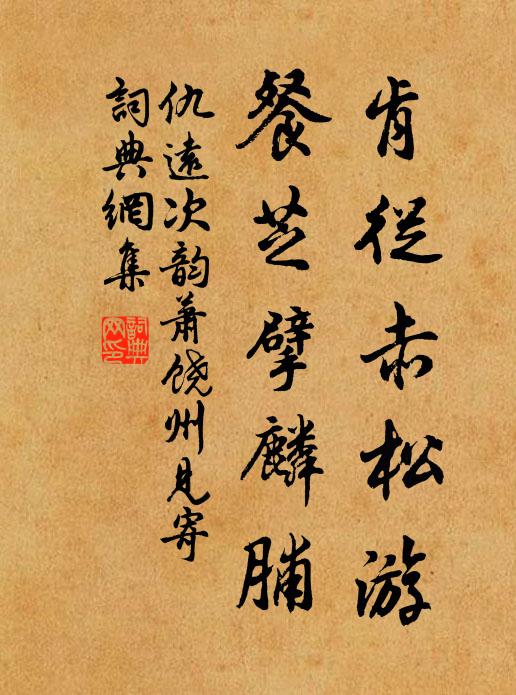 肯從赤松游
餐芝擘麟脯
仇遠次韵蕭饒州見寄
詞典網集
詞典网印